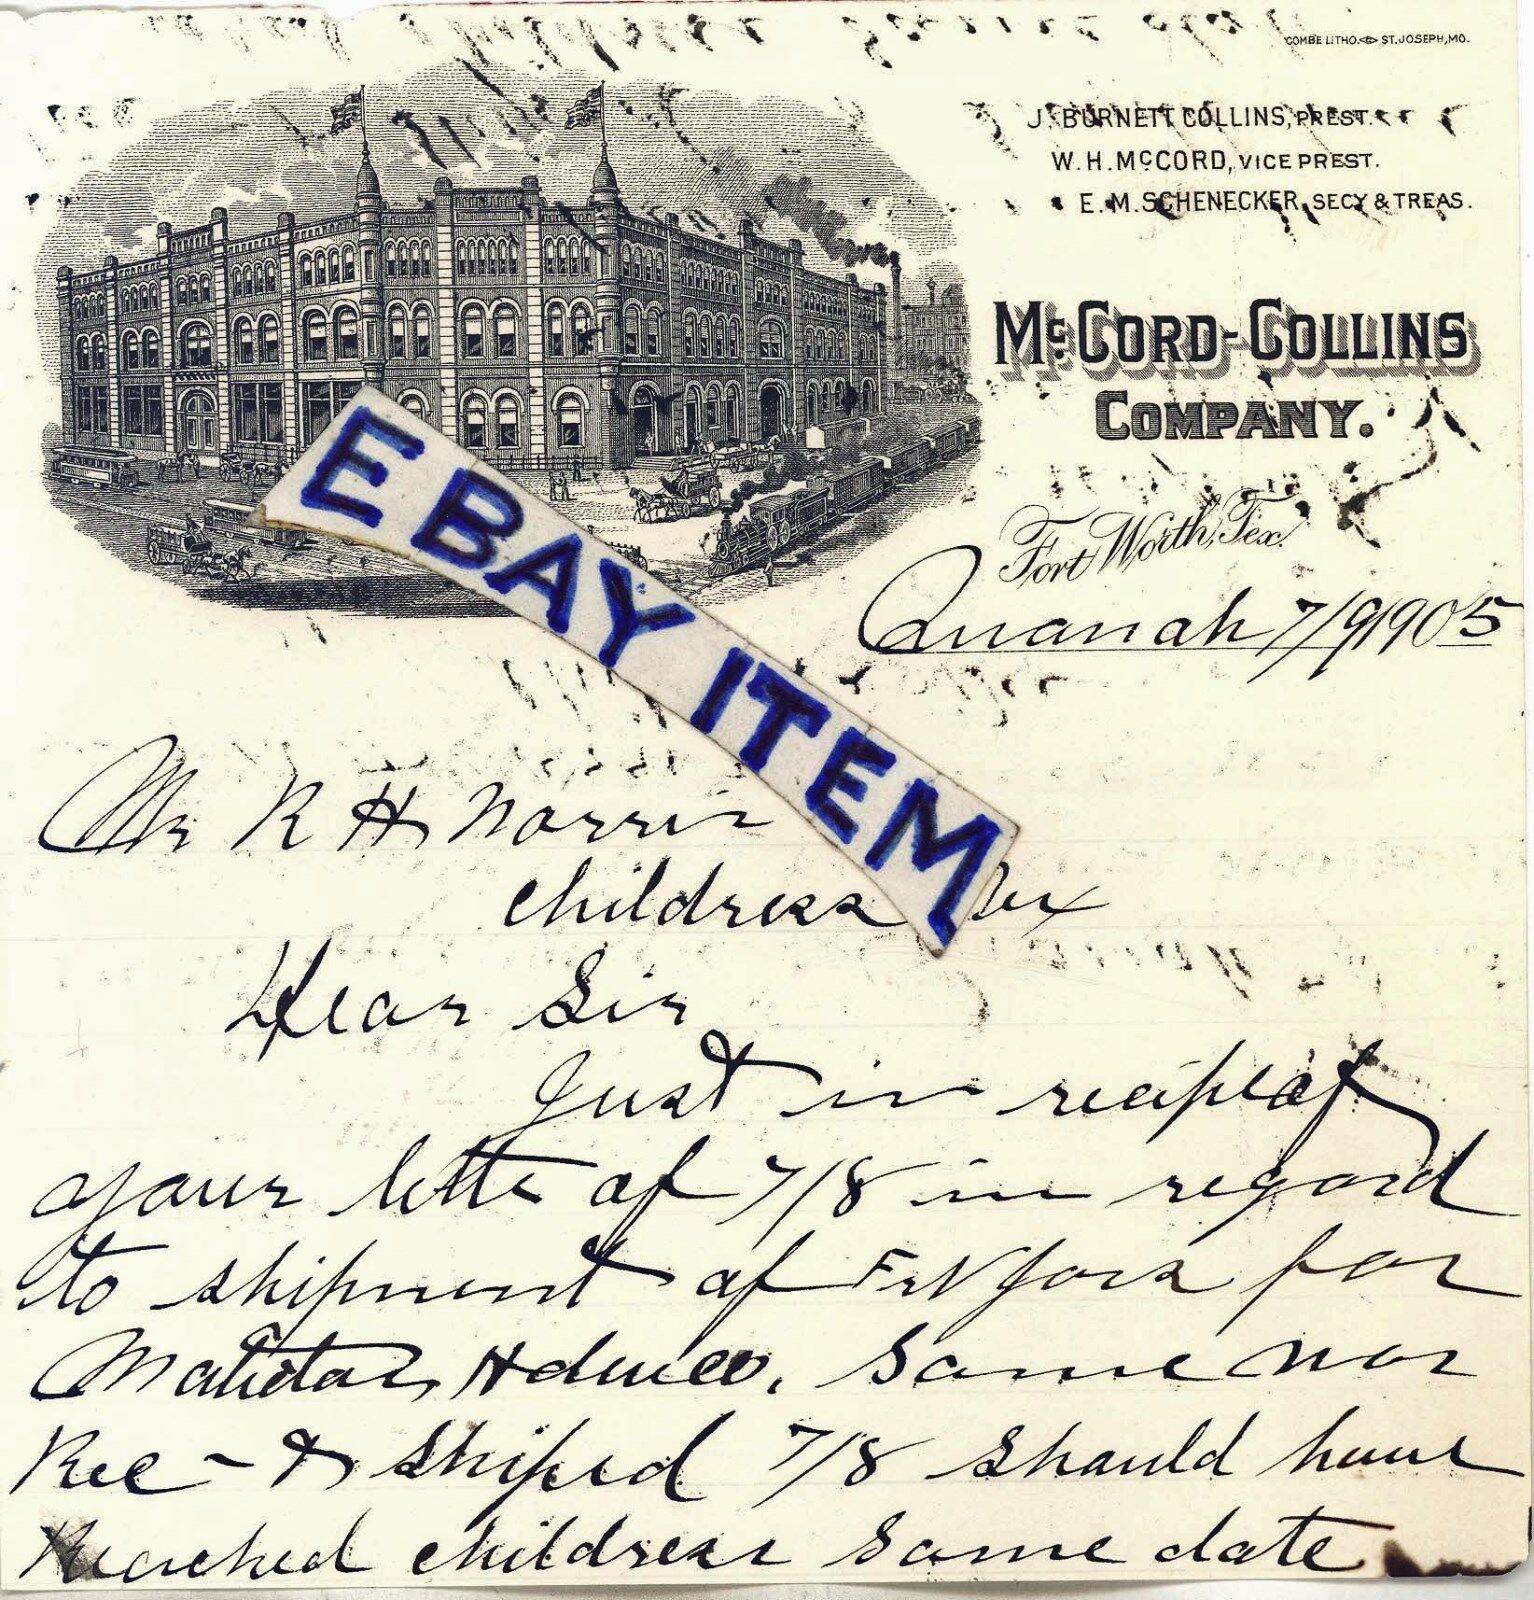 COMBE LITHO. ST. JOSEPH, MO.
J. BURNETT COLLINS, PREST.
W. H. McCORD, VICE PREST.
E. M. SCHENECKER, SECY & TREAS.
McCORD-COLLINS
COMPANY.
Fort Worth, Tex.
Quanah 7/9 1905
EBAY ITEM
Mr R H Norris
Childress Tex
Dear Sir
Just in reciept of
your letter of 7/8 in regard
to shipment of for
Matador, Same was
Rec - & Shiped 7/8 should have
Reached Childress Same date